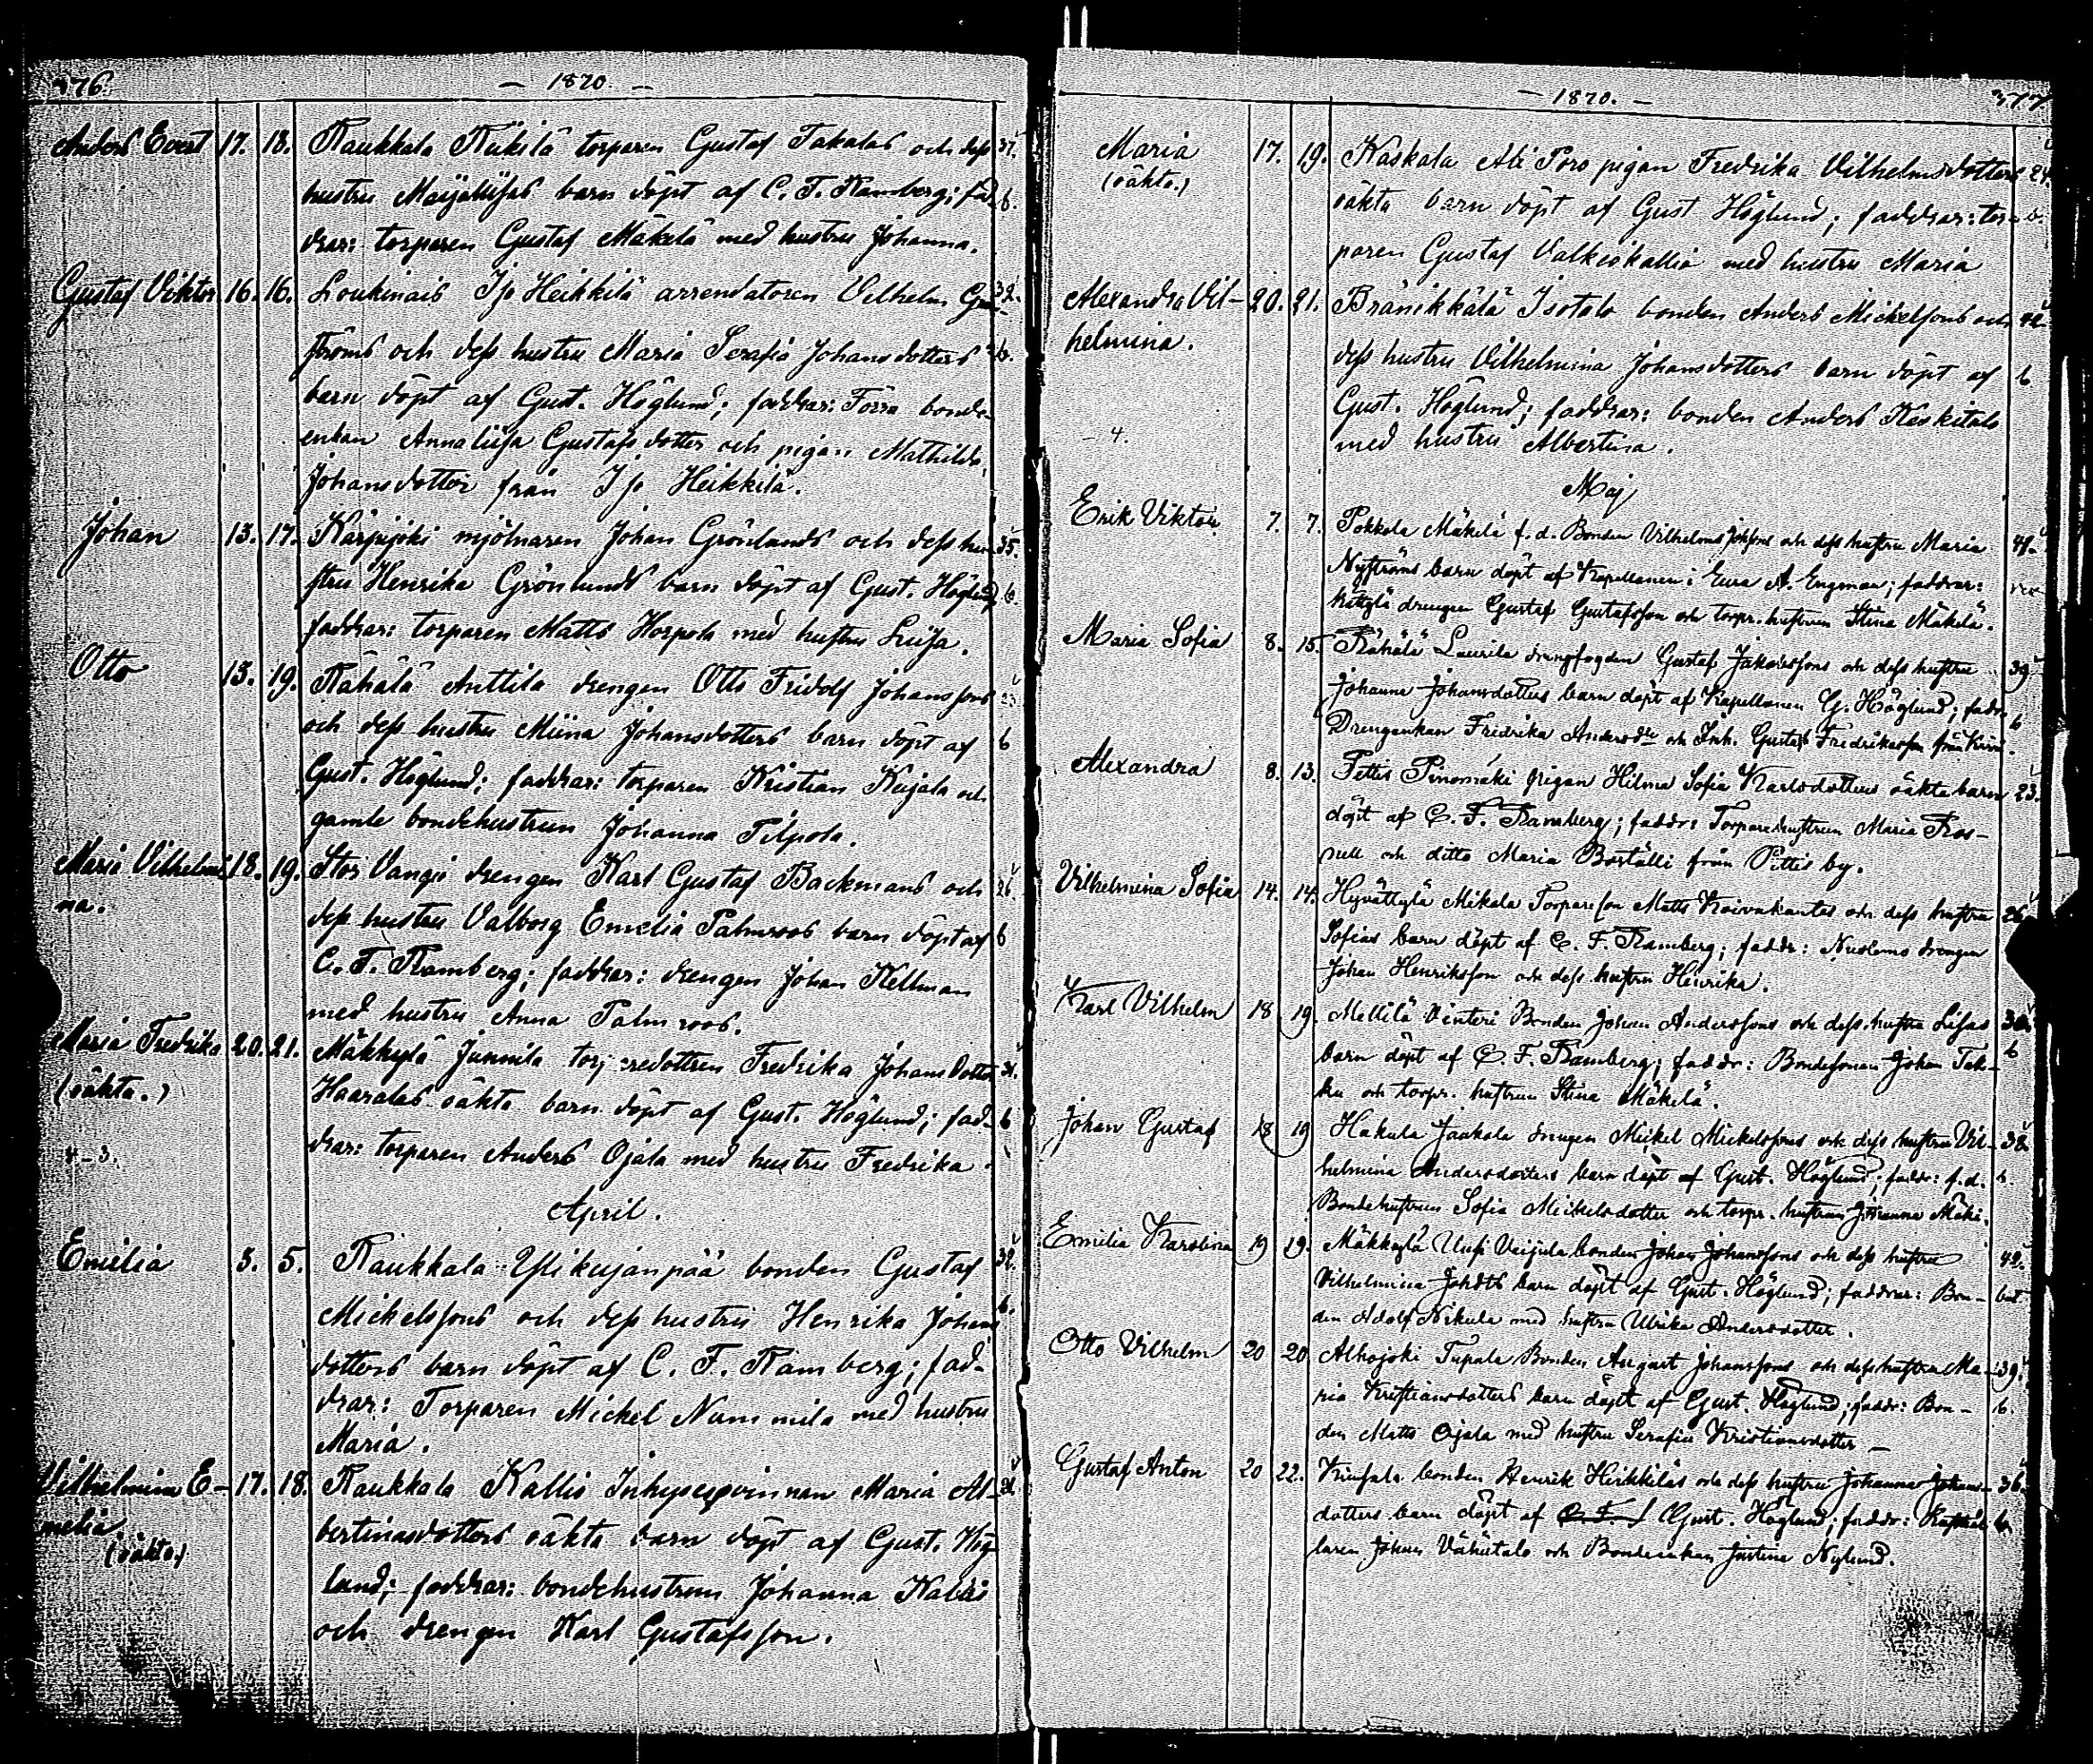 376.
— 1870. —
Anders Evert 17. 18. Raukkala Rükilä torparen Gustaf Takalas och dess 37.
hustru Maijalisas barn döpt af C. F. Ramberg; fad- b.
drar: torparen Gustaf Mäkelä med hustru Johanna.
Gustaf Viktor 16. 16. Loukinais Iso Heikkilä arrendatoren Vilhelm Gran- 32.
ströms och dess hustru Maria Serafia Johansdotters b.
barn döpt af Gust. Höglund; faddrar: Förra bonde-
enkan Annalisa Gustafsdotter och pigan Mathilda
Johansdotter från Iso Heikkilä.
Johan 13. 17. Kärpijoki mjölnaren Johan Grönlunds och dess hu- 35.
stru Henrika Grönlunds barn döpt af Gust. Höglund b.
faddrar: torparen Matts Horpola med hustru Lisa.
Otto 13. 19. Rähälä Anttila drengen Otto Fridolf Johanssons
och dess hustru Miina Johansdotters barn döpt af b
Gust. Höglund; faddrar: torparen Kristian Kujala och
gamle bondehustrun Johanna Pilpola.
Maria Vilhelmi- 18. 19. Stor Vangio drengen Karl Gustaf Backmans och 26.
na. dess hustru Valborg Emelia Palmroos barn döpt af b
C. F. Ramberg; faddrar: drengen Johan Kellman
med hustru Anna Palmroos.
Maria Fredrika 20. 21. Mäkkylä Junnila torparedottren Fredrika Johansdotter 31.
(oäkta.) Haaralas oäkta barn döpt af Gust. Höglund; fad- b
drar: torparen Anders Ojala med hustru Fredrika.
4-3.
April.
Emilia 3. 5. Raukkala Ylikujanpää bonden Gustaf 32.
Mickelssons och dess hustru Henrika Johans b.
dotters barn döpt af C. F. Ramberg; fad-
drar: Torparen Mickel Nummila med hustru
Maria.
Vilhelmina E- 17. 18. Raukkala Kallio Inhyseqvinnan Maria Al-
melia bertinasdotters oäkta barn döpt af Gust. Hög-
(oäkta) lund; faddrar: bondehustrun Johanna Kallio
och drengen Karl Gustafsson.
— 1870. —
377
Maria 17. 19. Kaskala Ali Poro pigan Fredrika Vilhelmsdotters 24.
(oäkta.) oäkta barn döpt af Gust Höglund; faddrar: tor- b.
paren Gustaf Valkiokallio med hustru Maria
Alexandra Vil- 20. 21. Bränikkälä Isotalo bonden Anders Mickelssons och 42.
helmina. dess hustru Vilhelmina Johansdotters barn döpt af b
Gust. Höglund; faddrar: bonden Anders Keskitalo
- 4. med hustru Albertina.
Maj
Erik Viktor 7. 7. Pokkola Mäkelä f. d. Bonden Vilhelms Johssons och dess hustru Maria 41.
Nyströms barn döpt af Kapellanen i Eura A. Engman; faddrar:
drengen Gustaf Gustafsson och torpr. hustrun Stina Mäkelä.
Maria Sofia 8. 15. Rähälä Laurila drengfogden Gustaf Jakobssons och dess hustru 39
Johanna Johansdotters barn döpt af Kapellanen G. Höglund; faddr. b
Drengenkan Fredrika Andersdr och Inh. Gustaf Fredriksson från
Alexandra 8. 13. Pettis Pinomäki pigan Hilma Sofia Karlsdotters oäkta barn 23.
döpt af C. F. Ramberg; faddr: Torparehustrun Maria Ros-
nell och ditto Maria Bortälli från Pettis by.
Vilhelmina Sofia 14. 14. Hyvättylä Mikola Torpareson Matts Koivukantas och dess hustru 26
Sofias barn döpt af C. F. Ramberg; faddr: Nuoloms drengen
Johan Henriksson och dess hustru Henrika.
Karl Vilhelm 18 19. Mellilä Vinteri Bonden Johan Anderssons och dess hustru Lisas 30.
barn döpt af C. F. Ramberg; faddr: Bondesonen Johan Tak- b
ku och torpr. hustrun Stina Mäkelä.
Johan Gustaf 18 19 Hakula Jaakola drengen Mickel Mickelssons och dess hustru Vil- 32
helmina Andersdotters barn döpt af Gust. Höglund; faddr: f. d. b.
Bondehustrun Sofia Mickelsdotter och torpr. hustrun Johanna Mäki.
Emilia Karolina 19 19. Mäkkylä Uusi Veijula bonden Johan Johanssons och dess hustru 42.
Vilhelmina Johdts barn döpt af Gust. Höglund; faddrar: Bon-
den Adolf Nikula med hustru Ulrika Andersdotter.
Otto Vilhelm 20 20 Alhojoki Tupala Bonden August Johanssons och dess hustru Ma- 39.
ria Kristiansdotters barn döpt af Gust. Höglund; faddr: Bon- b.
den Matts Ojala med hustru Serafia Kristiansdotter —
Gustaf Anton 20 22. bonden Henrik Heikkiläs och dess hustru Johanna Johans- 36
dotters barn döpt af C. F. Gust. Höglund; faddr: b
laren Johan Vähätalo och Bondeenkan Justina Nylund.